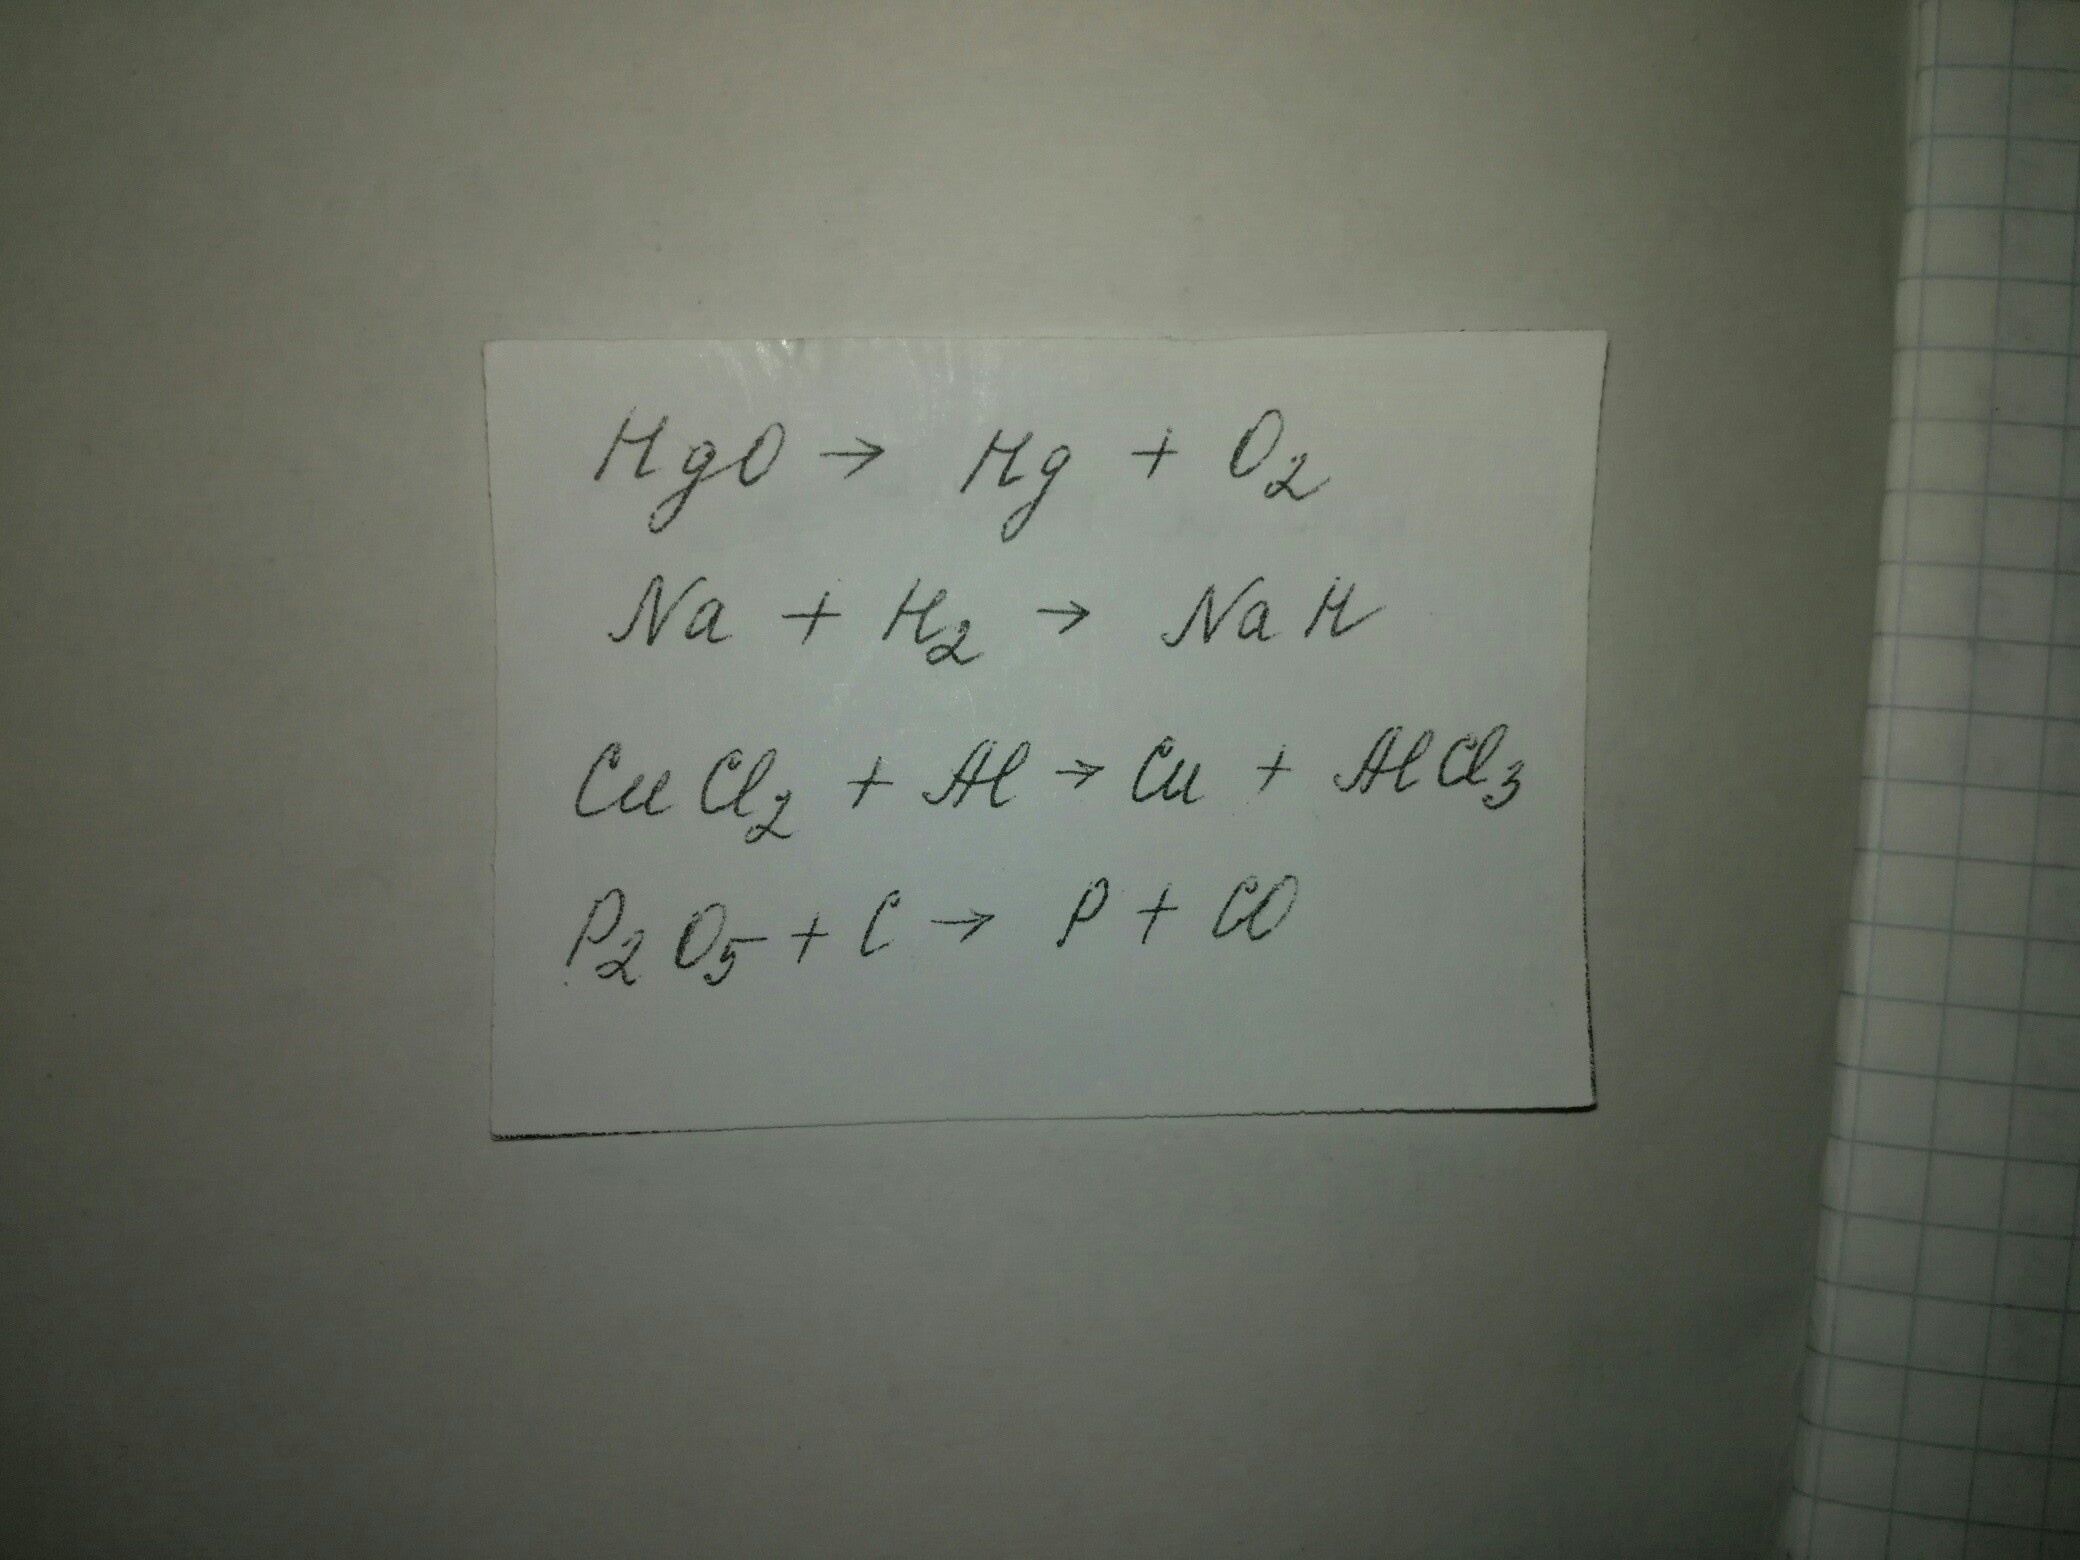 HgO → Hg + O₂
Na + H₂ → NaH
CuCl₂ + Al → Cu + AlCl₃
P₂O₅ + C → P + CO